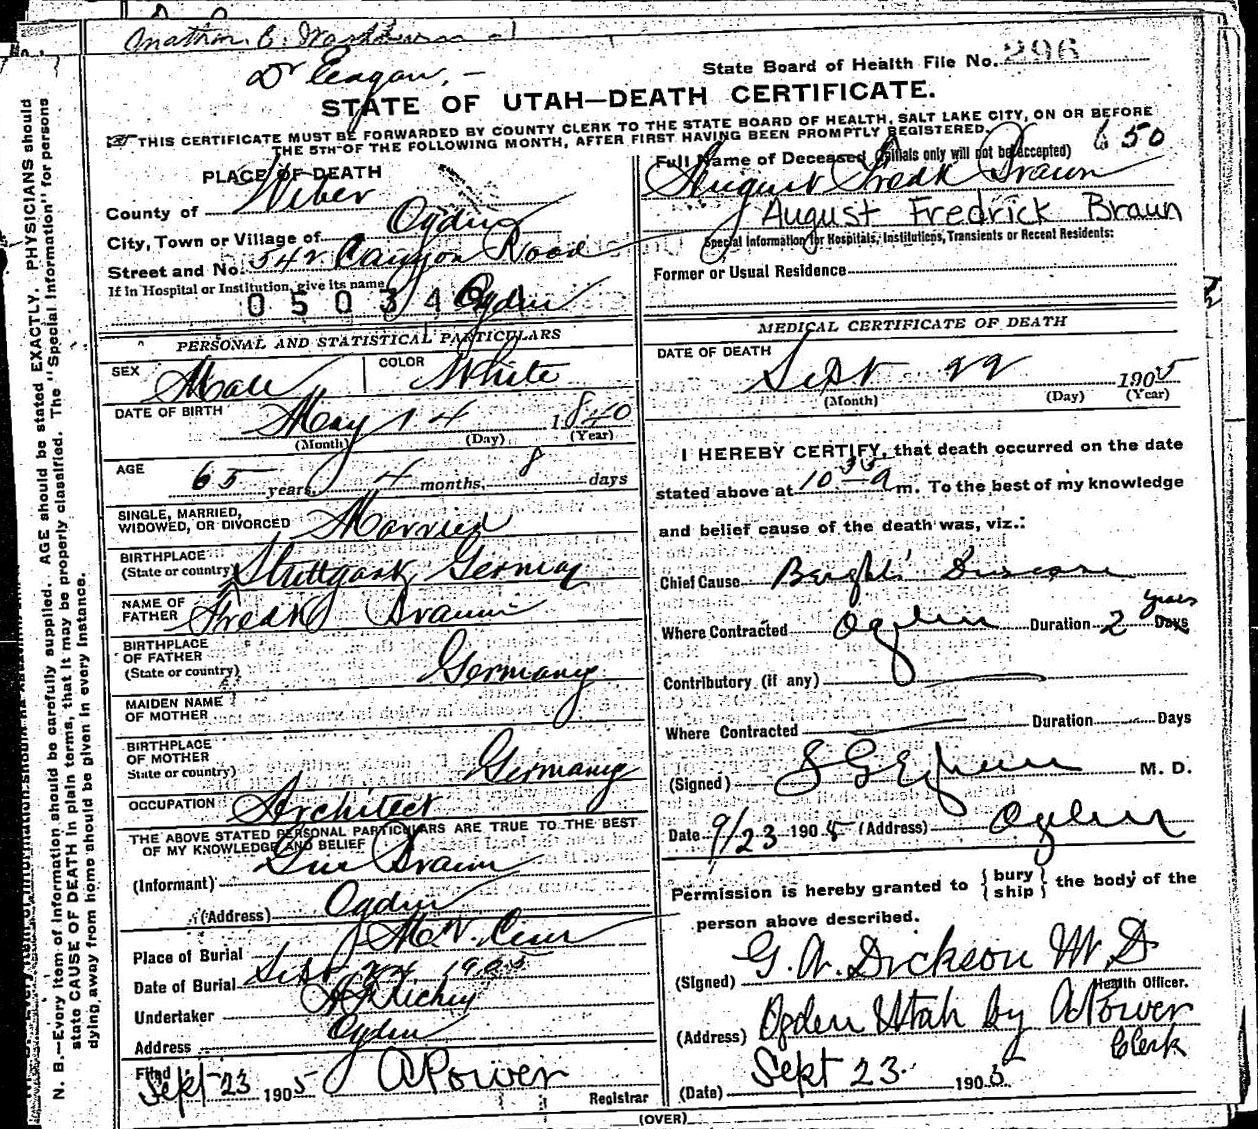 Dr Eagan, —
State Board of Health File No. 296
STATE OF UTAH—DEATH CERTIFICATE.
THIS CERTIFICATE MUST BE FORWARDED BY COUNTY CLERK TO THE STATE BOARD OF HEALTH, SALT LAKE CITY, ON OR BEFORE
THE 5TH OF THE FOLLOWING MONTH, AFTER FIRST HAVING BEEN PROMPTLY REGISTERED.
N. B.—Every item of information should be carefully supplied. AGE should be stated EXACTLY. PHYSICIANS should
state CAUSE OF DEATH in plain terms, that it may be properly classified. The "Special Information" for persons
dying away from home should be given in every instance.
PLACE OF DEATH
County of Weber
City, Town or Village of Ogden
Street and No. 542 Canyon Road
If in Hospital or Institution, give its name
Ogden
PERSONAL AND STATISTICAL PARTICULARS
SEX Male COLOR White
DATE OF BIRTH May 14 1840
(Month) (Day) (Year)
AGE 65 years, 4 months, 8 days
SINGLE, MARRIED,
WIDOWED, OR DIVORCED Married
BIRTHPLACE
(State or country) Stuttgart Germany
NAME OF
FATHER Fredk Braun
BIRTHPLACE
OF FATHER
(State or country) Germany
MAIDEN NAME
OF MOTHER
BIRTHPLACE
OF MOTHER
State or country) Germany
OCCUPATION Architect
THE ABOVE STATED PERSONAL PARTICULARS ARE TRUE TO THE BEST
OF MY KNOWLEDGE AND BELIEF
(Informant) Braun
(Address) Ogden
Place of Burial
Date of Burial Sept 24 1905
Undertaker Richey
Address Ogden
Filed Sept 23 1905 A Power
Registrar
Full Name of Deceased (Initials only will not be accepted) 650
August Fredk Braun
August Fredrick Braun
Special Information for Hospitals, Institutions, Transients or Recent Residents:
Former or Usual Residence
MEDICAL CERTIFICATE OF DEATH
DATE OF DEATH Sept 22 1905
(Month) (Day) (Year)
I HEREBY CERTIFY, that death occurred on the date
stated above at 10 35 a m. To the best of my knowledge
and belief cause of the death was, viz.:
Chief Cause Bright's Disease
Where Contracted Ogden Duration 2 years Days
Contributory (if any)
Where Contracted Duration Days
(Signed) M. D.
Date 9/23 1905 (Address) Ogden
Permission is hereby granted to { bury ship } the body of the
person above described.
(Signed) G. W. Dickson M D
Health Officer.
(Address) Ogden Utah by A Power
Clerk
(Date) Sept 23 1905
(OVER)